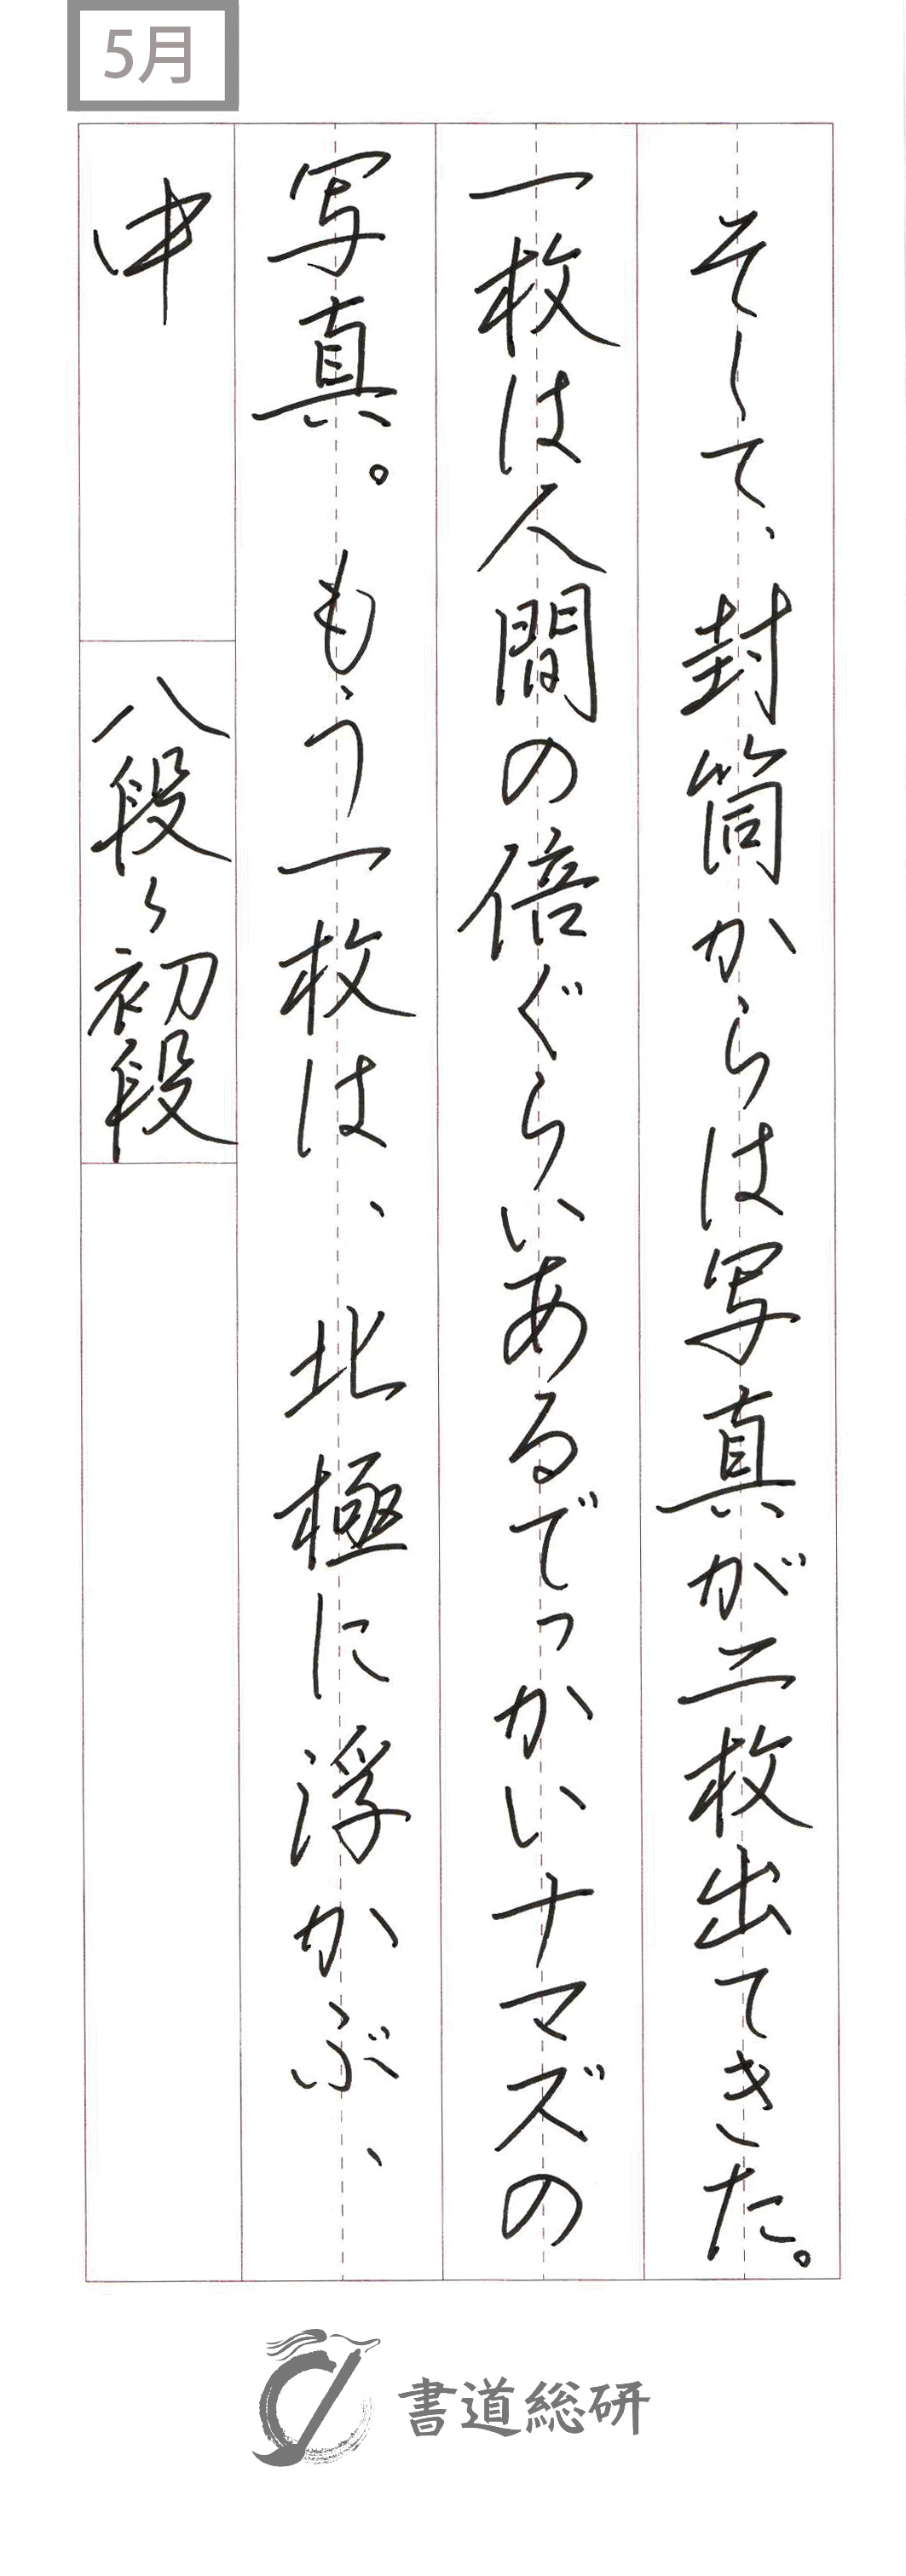 5月
そして、封筒からは写真が二枚出てきた。
一枚は人間の倍ぐらいあるでっかいナマズの
写真。もう一枚は、北極に浮かぶ、
中
八段〜初段
書道総研